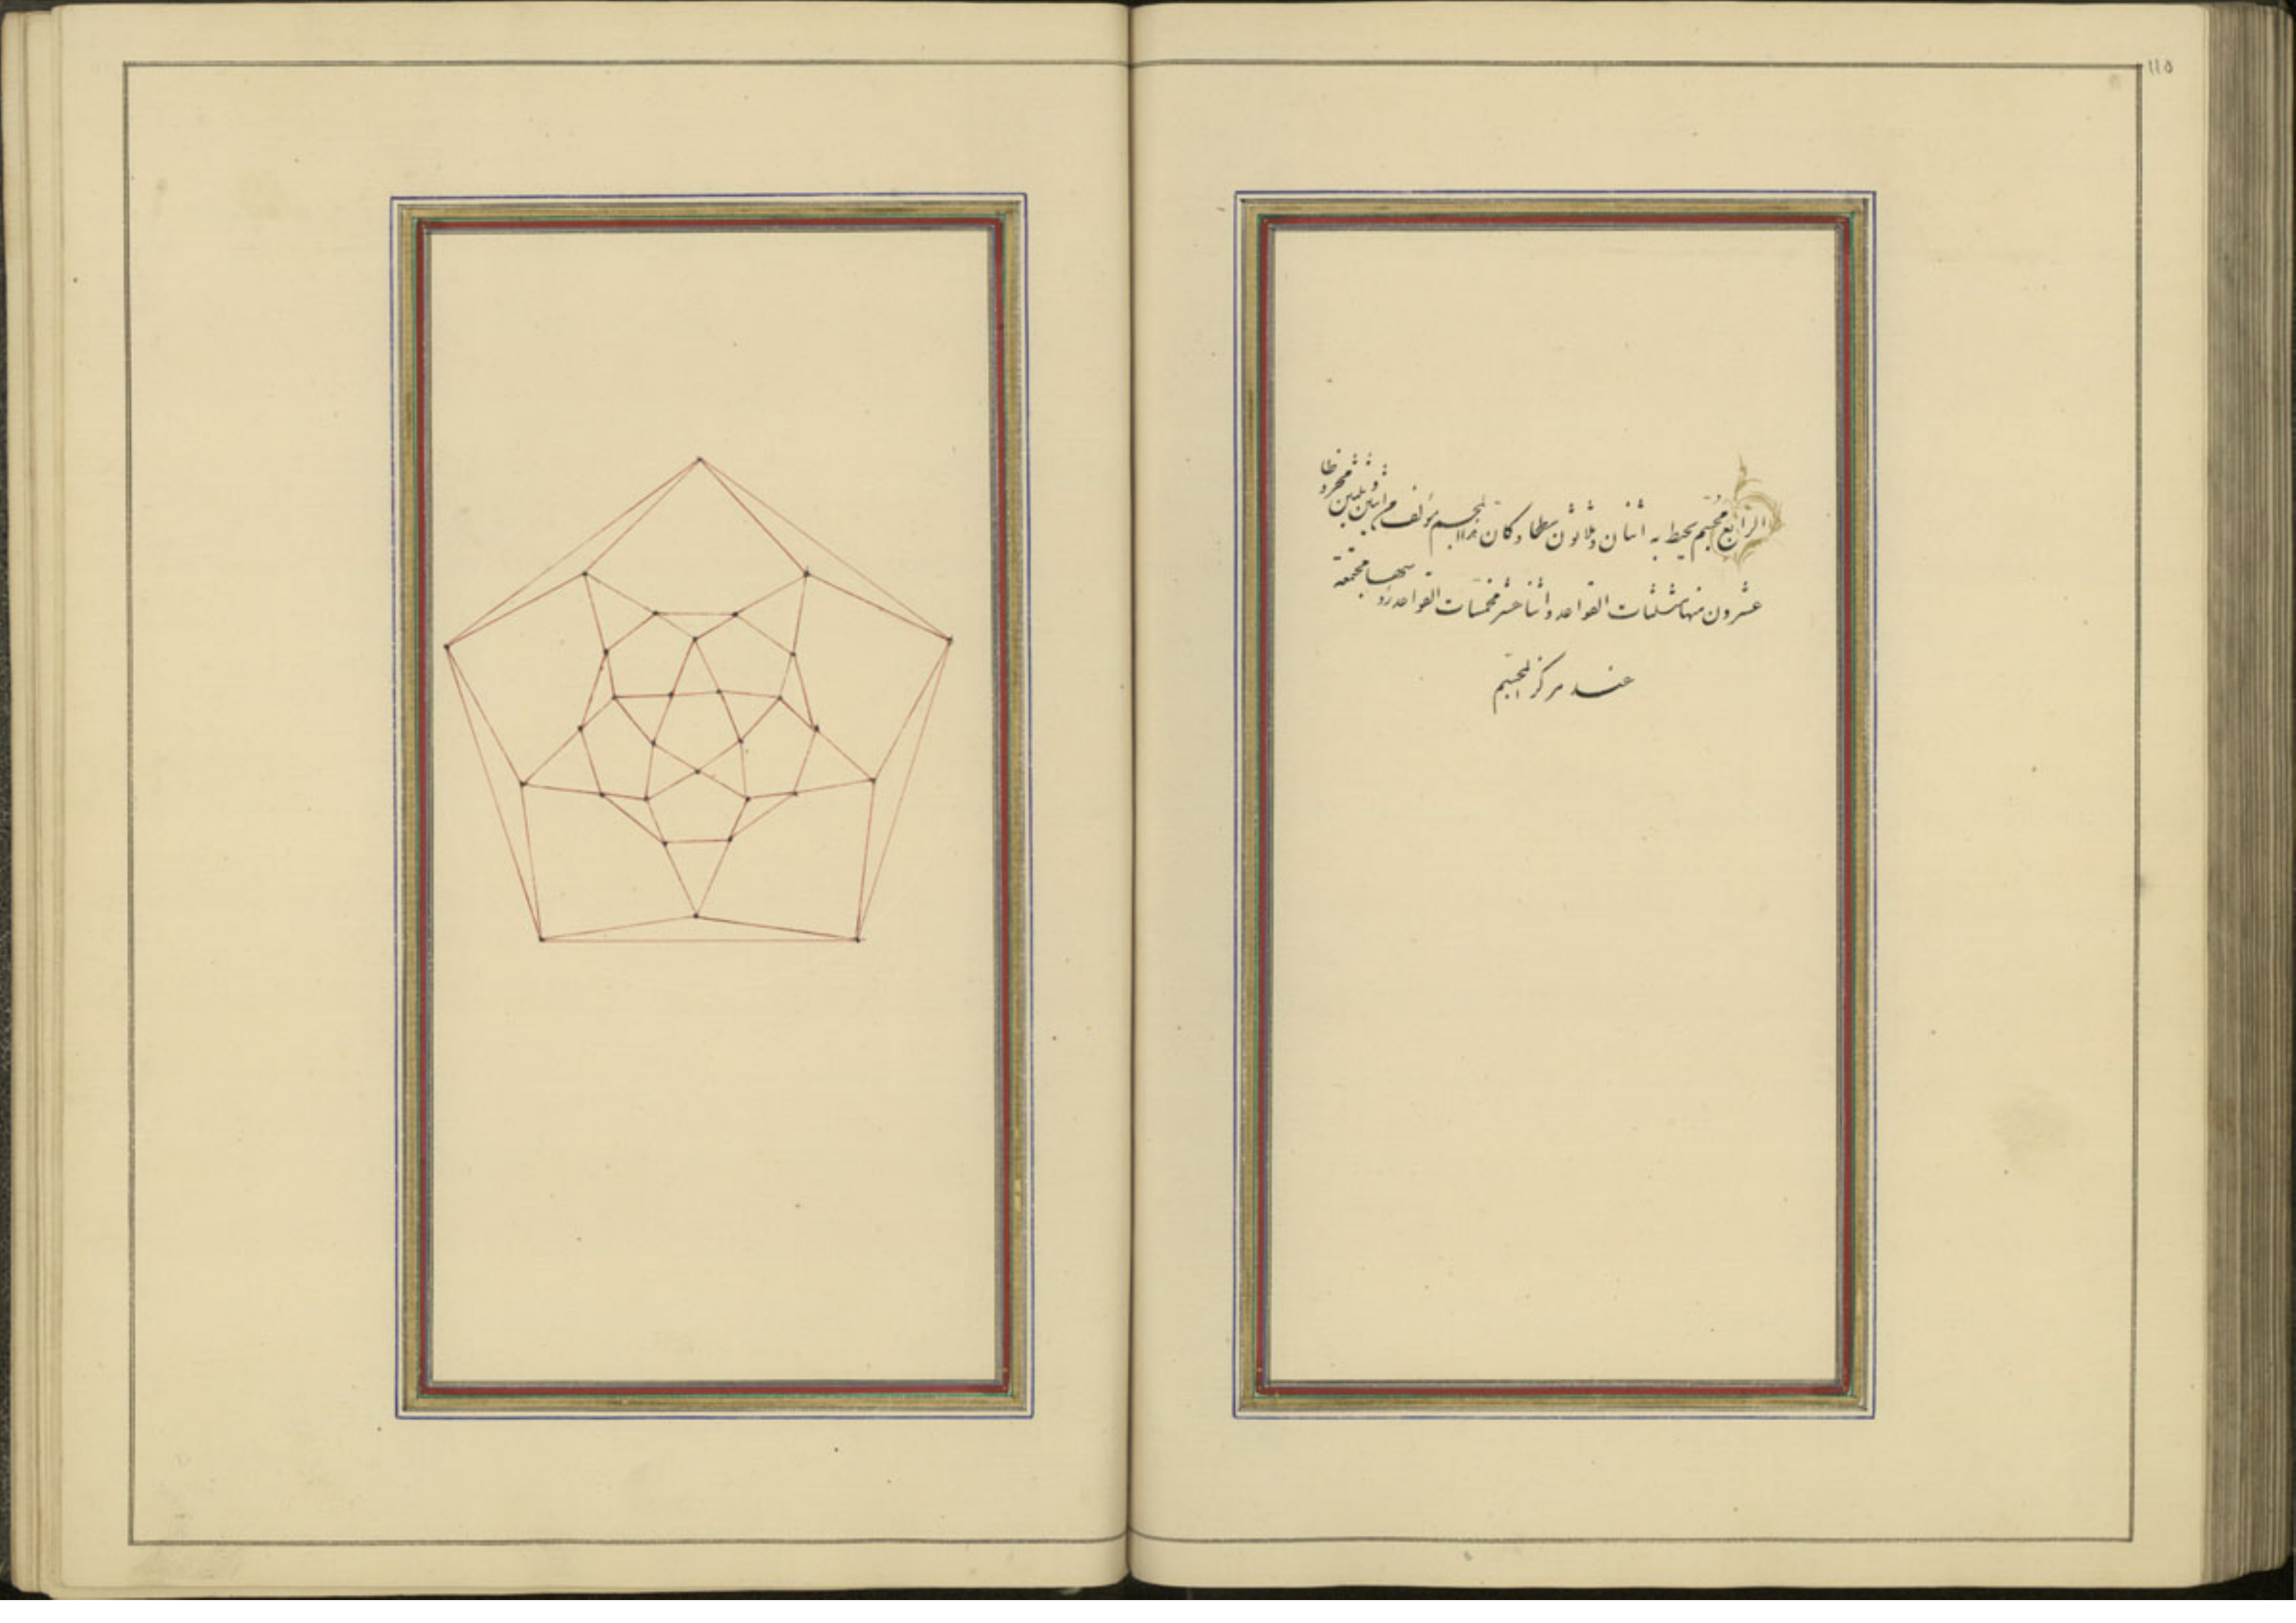 ١١٥
الرابع مجسم يحيط به اثنان وثلاثون سطحا وكان هذا المجسم مؤلف من اثنين وثلثين مخروطا
عشرون منها مثلثات القواعد واثنا عشر مخمسات القواعد رؤسها مجتمعة
عند مركز المجسم